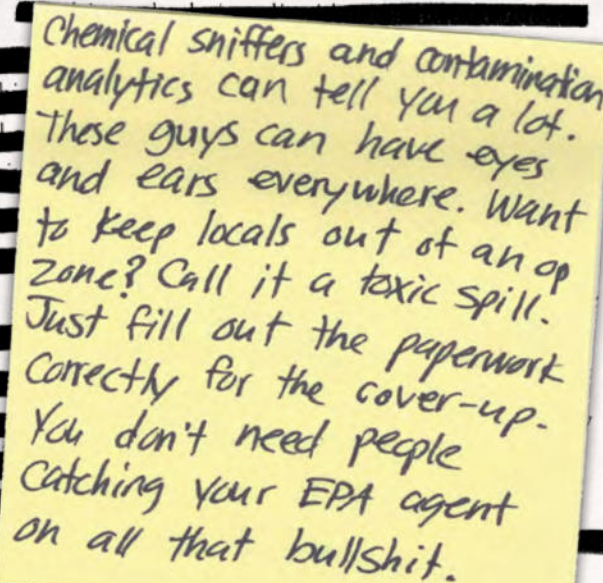 Chemical sniffers and contamination
analytics can tell you a lot.
These guys can have eyes
and ears everywhere. Want
to keep locals out of an op
zone? Call it a toxic spill.
Just fill out the paperwork
correctly for the cover-up.
You don't need people
catching your EPA agent
on all that bullshit.